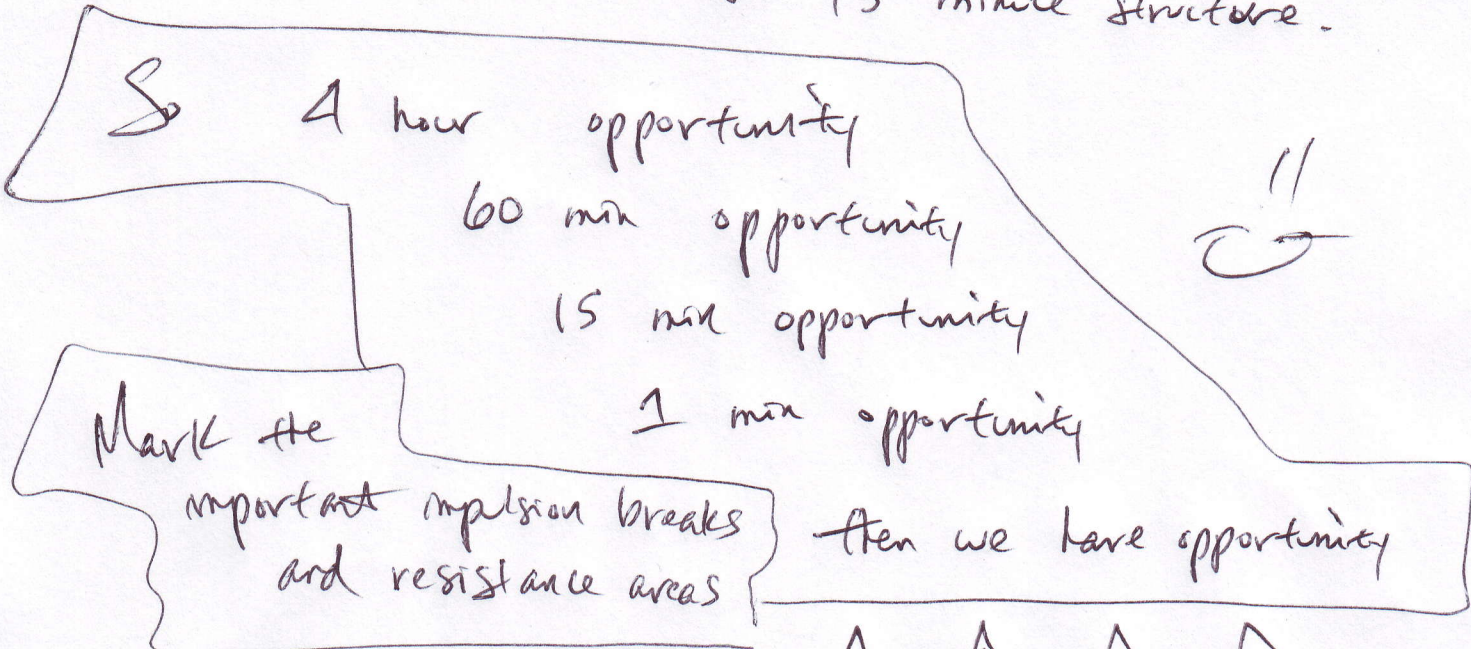 15 minute structure.
So 4 hour opportunity
60 min opportunity
15 min opportunity
1 min opportunity
then we have opportunity
Mark the
important impulsion breaks
and resistance areas